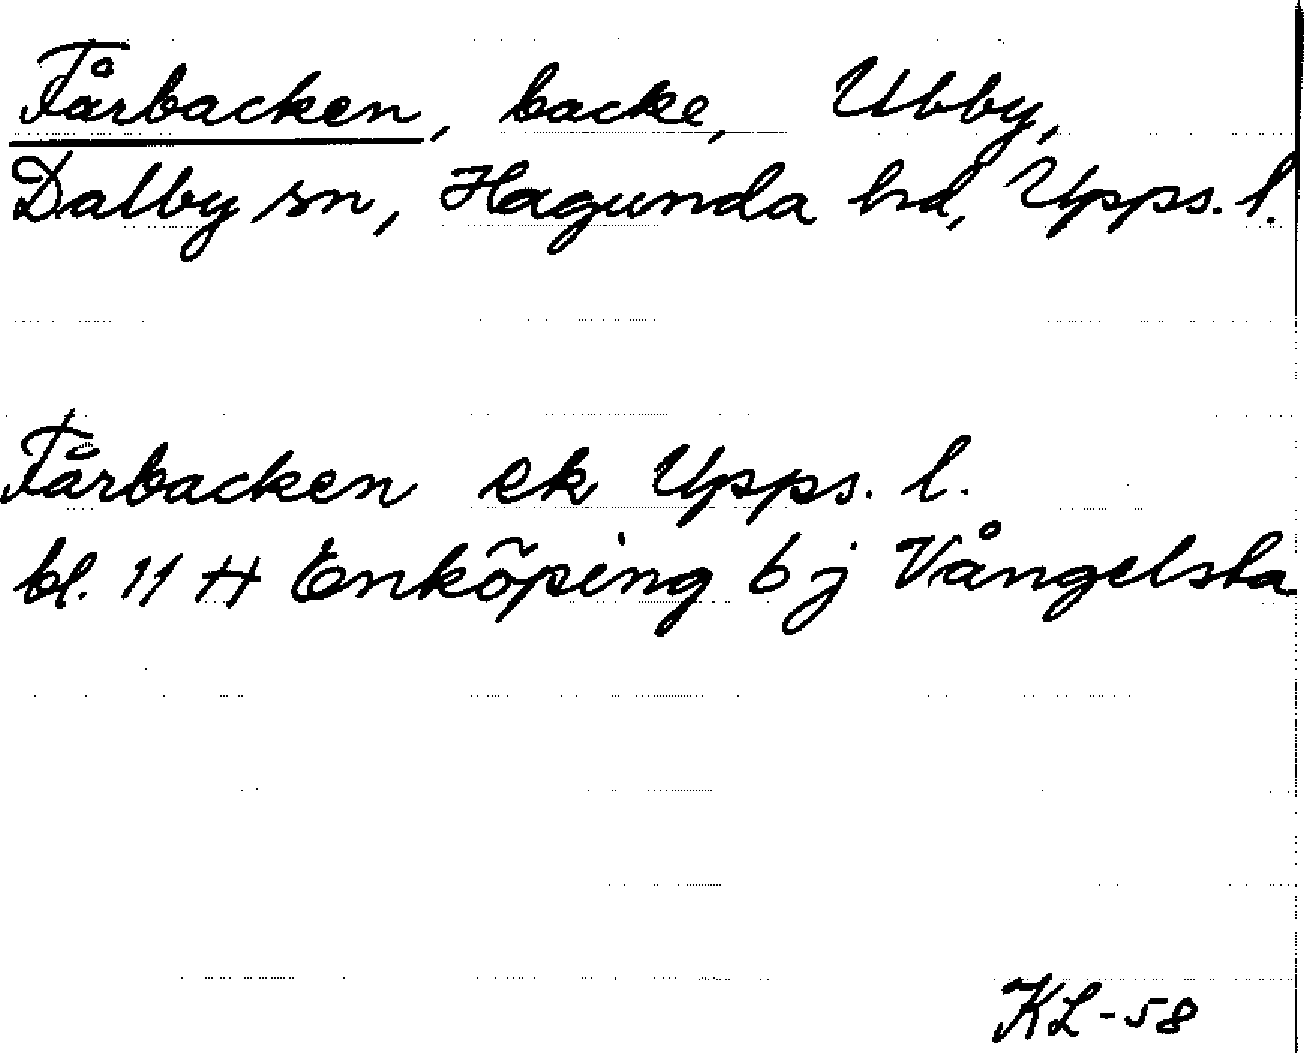 Fårbacken, backe, Ubby,
Dalby sn, Hagunda hd, Upps. l.
Fårbacken ek Upps. l.
bl. 11 H Enköping 6 j Vångelsta
KL-58